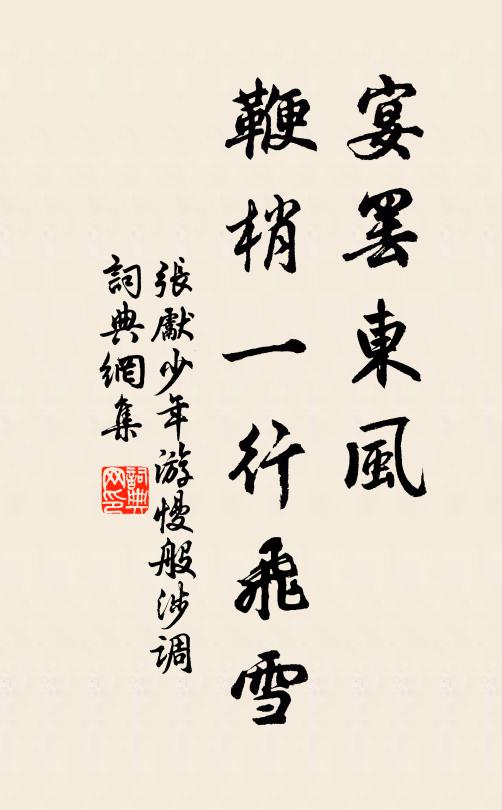 宴罷東風
鞭梢一行飛雪
張獻少年游慢般涉調
詞典網集
詞典
网印